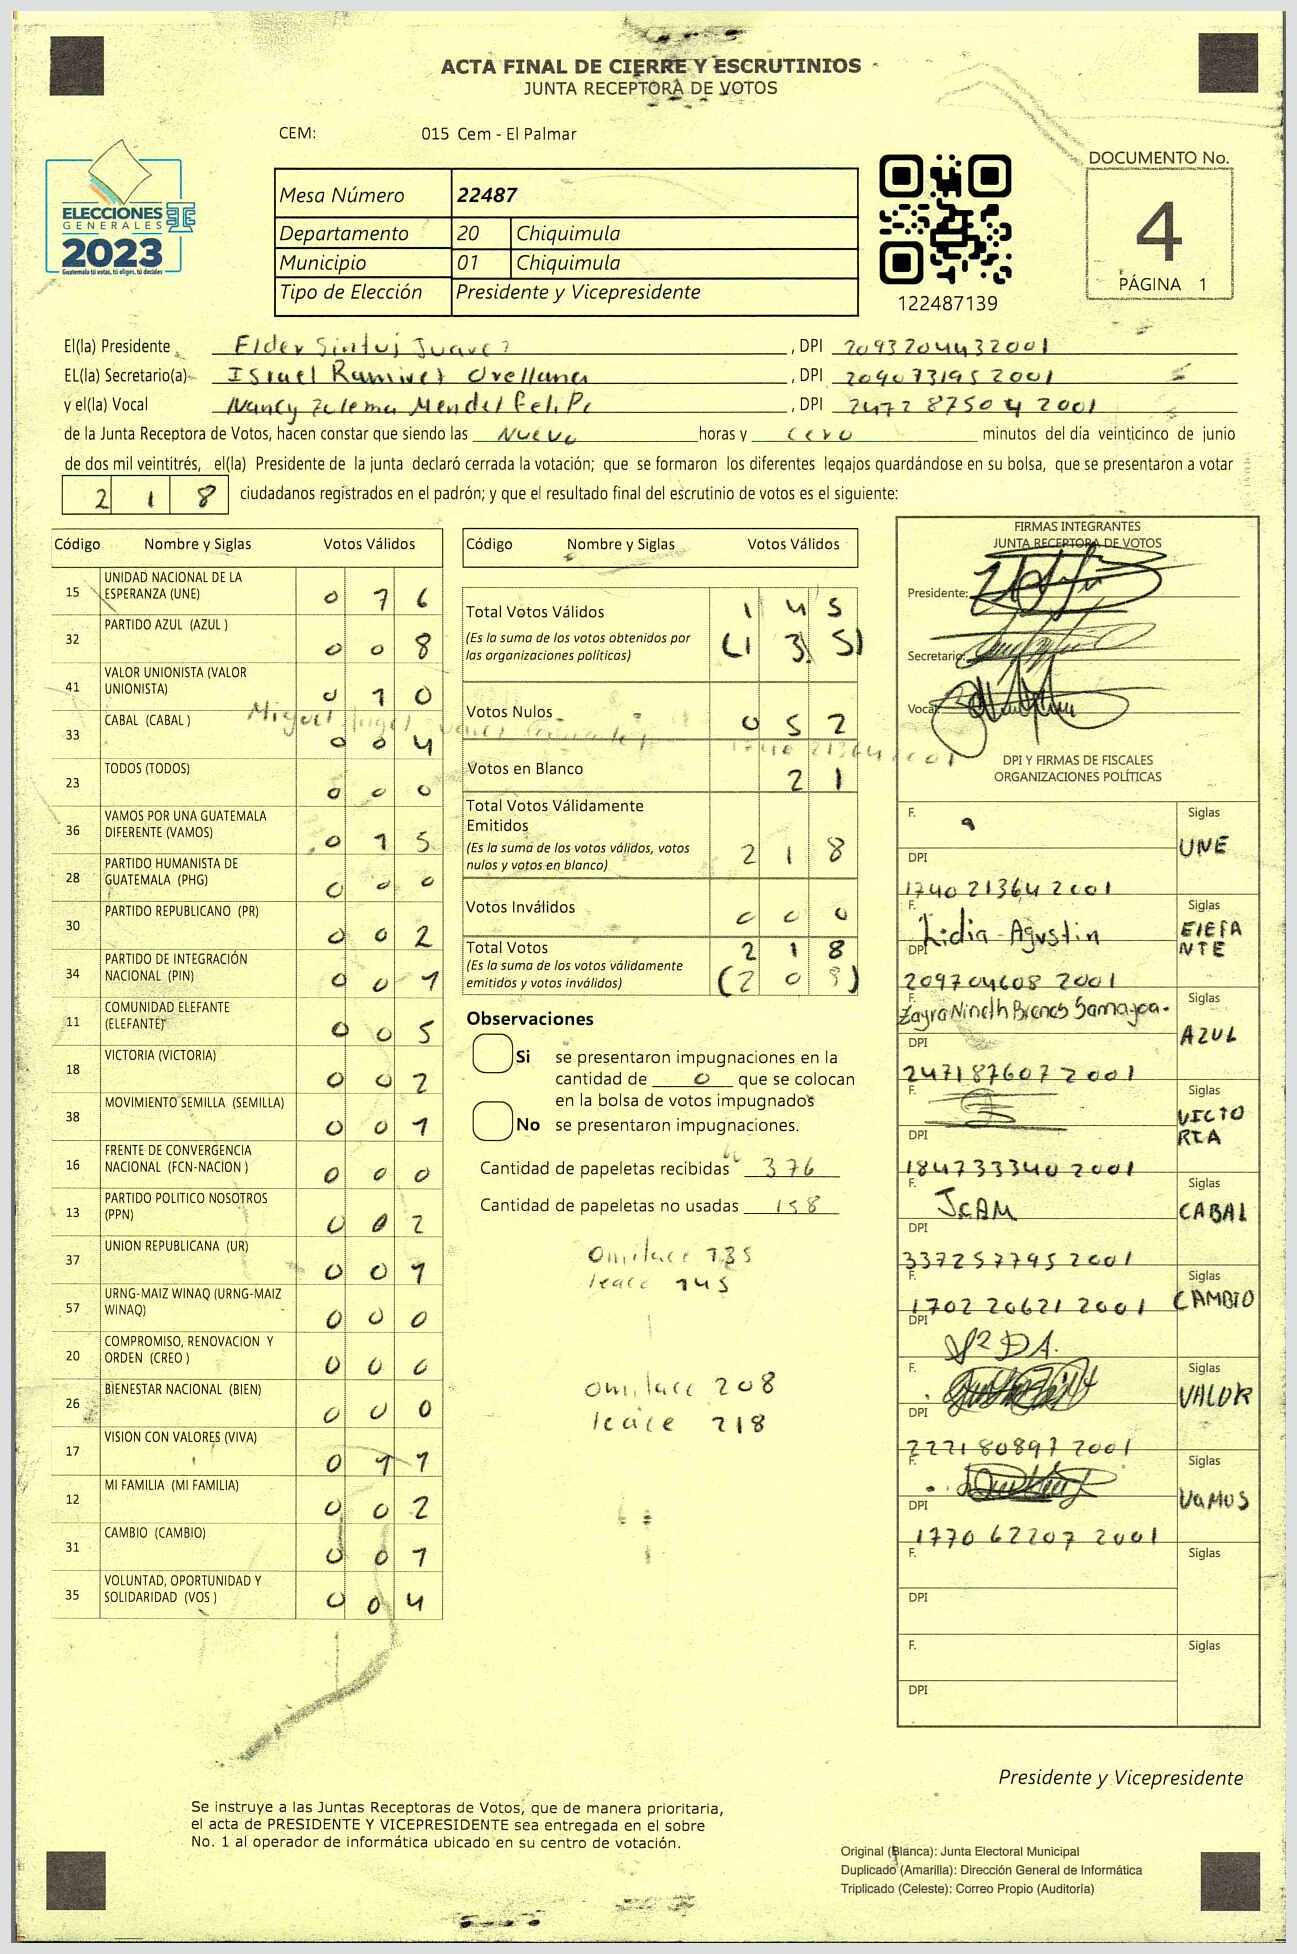 ACTA FINAL DE CIERRE Y ESCRUTINIOS
JUNTA RECEPTORA DE VOTOS
CEM: 015 Cem - El Palmar
ELECCIONES
GENERALES
2023
Guatemala tú votas, tú eliges, tú decides
Mesa Número 22487
Departamento 20 Chiquimula
Municipio 01 Chiquimula
Tipo de Elección Presidente y Vicepresidente
122487139
DOCUMENTO No.
4
PÁGINA 1
El(la) Presidente Elder Sintuj Juarez , DPI 2093204432001
EL(la) Secretario(a) Israel Ramirez Orellana , DPI 2090731952001
y el(la) Vocal Nancy Zulema Mendez Felipe , DPI 2472875042001
de la Junta Receptora de Votos, hacen constar que siendo las Nueve horas y cero minutos del día veinticinco de junio
de dos mil veintitrés, el(la) Presidente de la junta declaró cerrada la votación; que se formaron los diferentes legajos guardándose en su bolsa, que se presentaron a votar
218 ciudadanos registrados en el padrón; y que el resultado final del escrutinio de votos es el siguiente:
Código Nombre y Siglas Votos Válidos
15 UNIDAD NACIONAL DE LA ESPERANZA (UNE) 076
32 PARTIDO AZUL (AZUL ) 008
41 VALOR UNIONISTA (VALOR UNIONISTA) 010
33 CABAL (CABAL ) 004
23 TODOS (TODOS) 000
36 VAMOS POR UNA GUATEMALA DIFERENTE (VAMOS) 015
28 PARTIDO HUMANISTA DE GUATEMALA (PHG) 000
30 PARTIDO REPUBLICANO (PR) 002
34 PARTIDO DE INTEGRACIÓN NACIONAL (PIN) 001
11 COMUNIDAD ELEFANTE (ELEFANTE) 005
18 VICTORIA (VICTORIA) 002
38 MOVIMIENTO SEMILLA (SEMILLA) 001
16 FRENTE DE CONVERGENCIA NACIONAL (FCN-NACION ) 000
13 PARTIDO POLITICO NOSOTROS (PPN) 002
37 UNION REPUBLICANA (UR) 001
57 URNG-MAIZ WINAQ (URNG-MAIZ WINAQ) 000
20 COMPROMISO, RENOVACION Y ORDEN (CREO ) 000
26 BIENESTAR NACIONAL (BIEN) 000
17 VISION CON VALORES (VIVA) 011
12 MI FAMILIA (MI FAMILIA) 002
31 CAMBIO (CAMBIO) 001
35 VOLUNTAD, OPORTUNIDAD Y SOLIDARIDAD (VOS ) 004
Miguel Angel
1740 21364 2001
Código Nombre y Siglas Votos Válidos
Total Votos Válidos 145
(Es la suma de los votos obtenidos por las organizaciones políticas) (135)
Votos Nulos 052
Votos en Blanco 21
Total Votos Válidamente Emitidos
(Es la suma de los votos válidos, votos nulos y votos en blanco) 218
Votos Inválidos 000
Total Votos 218
(Es la suma de los votos válidamente emitidos y votos inválidos) (208)
Observaciones
Si se presentaron impugnaciones en la
cantidad de 0 que se colocan
en la bolsa de votos impugnados
No se presentaron impugnaciones.
Cantidad de papeletas recibidas 376
Cantidad de papeletas no usadas 158
Omitace 135
leace 145
omitace 208
leace 218
FIRMAS INTEGRANTES
JUNTA RECEPTORA DE VOTOS
Presidente:
Secretario:
Vocal
DPI Y FIRMAS DE FISCALES
ORGANIZACIONES POLÍTICAS
F. Siglas UNE
DPI 1740 21364 2001
F. Lidia Agustin Siglas ElEFANTE
DPI 209704608 2001
F. Zayra Nineth Briones Samayoa. Siglas AZUL
DPI 247187607 2001
F. Siglas VICTORIA
DPI 184733340 2001
F. JCAM Siglas CABAL
DPI 337257795 2001
F. 1702 20621 2001 Siglas CAMBIO
DPI
F. Siglas VALOR
DPI 222180897 2001
F. Siglas VAMOS
DPI 1770 62207 2001
F. Siglas
DPI
F. Siglas
DPI
Presidente y Vicepresidente
Se instruye a las Juntas Receptoras de Votos, que de manera prioritaria,
el acta de PRESIDENTE Y VICEPRESIDENTE sea entregada en el sobre
No. 1 al operador de informática ubicado en su centro de votación.
Original (Blanca): Junta Electoral Municipal
Duplicado (Amarilla): Dirección General de Informática
Triplicado (Celeste): Correo Propio (Auditoría)